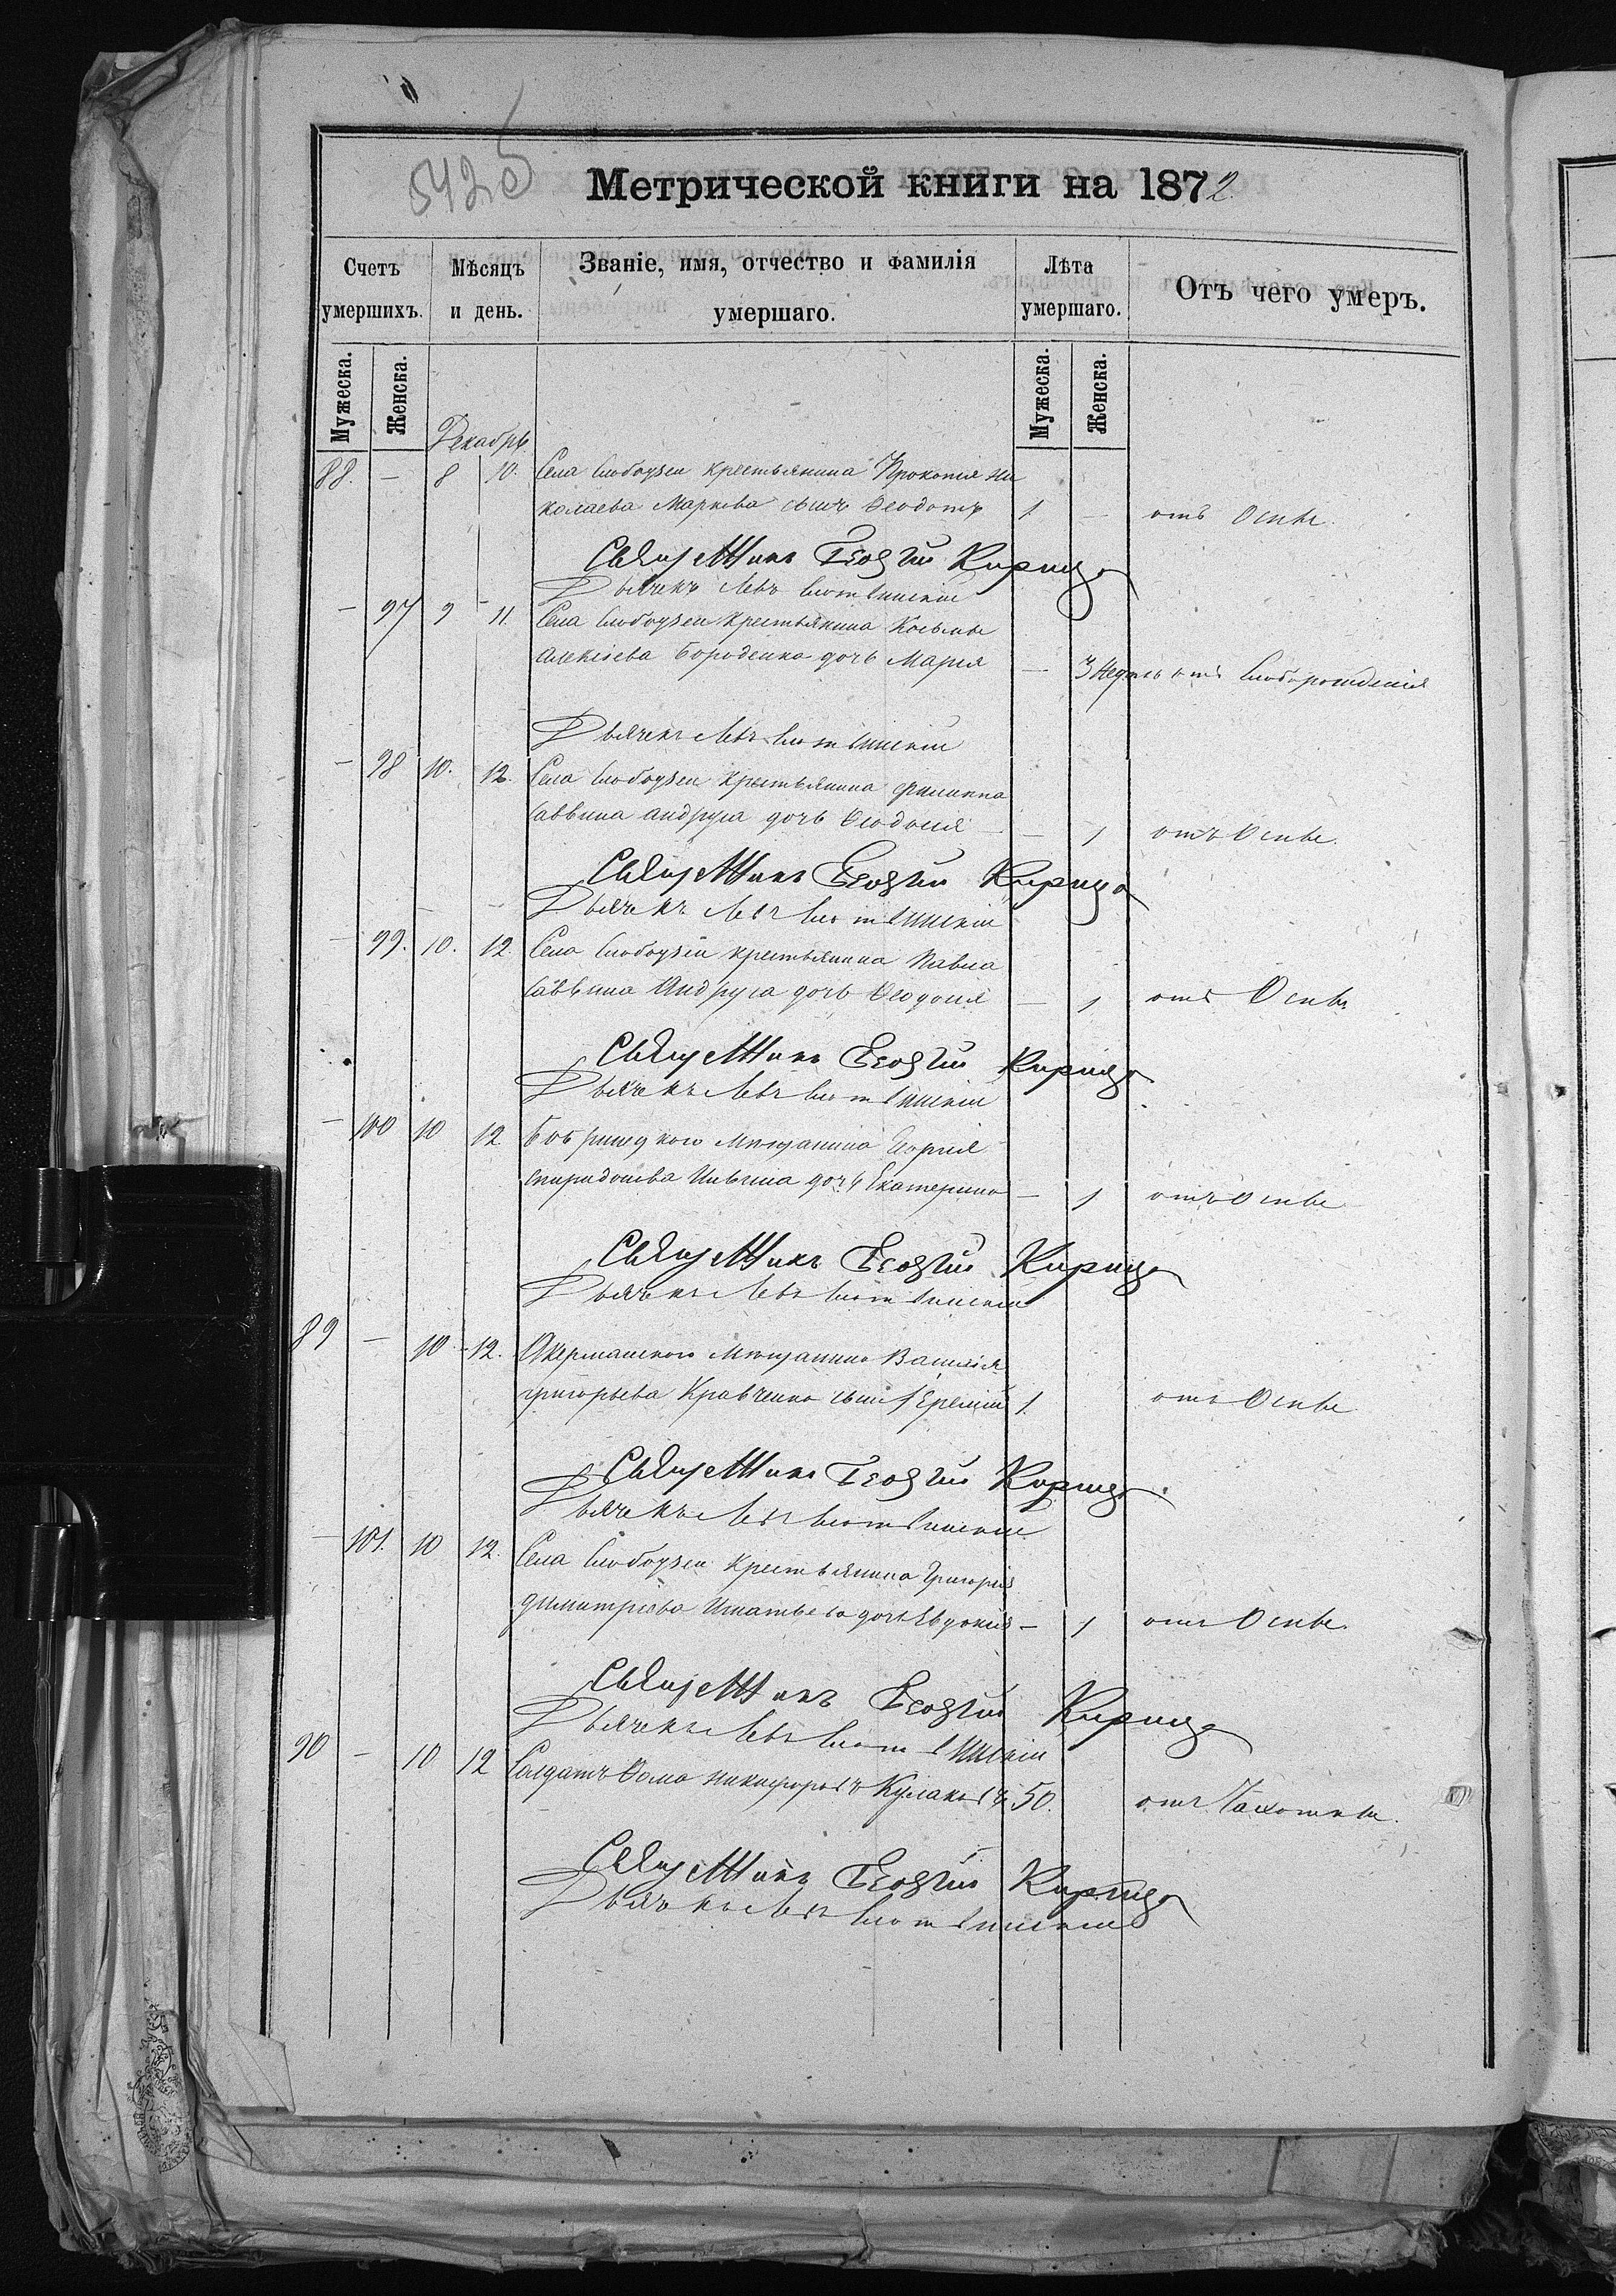 542 об
Метрической книги на 1872.
Счетъ умершихъ.
Мѣсяцъ и день.
Званіе, имя, отчество и фамилія умершаго.
Лѣта умершаго.
Отъ чего умеръ.
Мужеска. Женска. Мужеска. Женска.
Декабрь
88. — 8 10. Села Слободзеи крестьянина Прокопія Ни
колаева Маркова сынъ Ѳеодотъ 1 — отъ Оспы.
Священникъ Георгій Кирица
Дьячекъ Левъ
— 97 9 11. Села Слободзеи крестьянина Косьмы
Алексіева Бороденко дочь Марія — 3 недель отъ Слаборожденія
Дьячекъ Левъ
— 98 10. 12. Села Слободзеи крестьянина Филиппа
Саввина Андруга дочь Ѳеодосія — 1 отъ Оспы.
Священникъ Георгій Кирица
Дьячекъ Левъ
— 99. 10. 12. Села Слободзеи крестьянина Павла
Саввина Андруга дочь Ѳеодосія — 1 отъ Оспы
Священникъ Георгій Кирица
Дьячекъ Левъ
— 100 10 12 Бобринецкого Мещанина Георгія
Спиридонова дочь Екатерина — 1 отъ Оспы
Священникъ Георгій Кирица
Дьячекъ Левъ
89 — 10 12. Акерманского Мещанина Василія
Григорьева Кравченко сынъ Еремій 1. отъ Оспы
Священникъ Георгій Кирица
Дьячекъ Левъ
— 101. 10 12. Села Слободзеи крестьянина Григорія
Димитріева Игнатьева дочь Евдокія — 1 отъ Оспы.
Священникъ Георгій Кирица
Дьячекъ Левъ
90 — 10 12 Солдатъ Ѳома Никифоровъ Кулаковъ 50. отъ Чахотки.
Священникъ Георгій Кирица
Дьячекъ Левъ